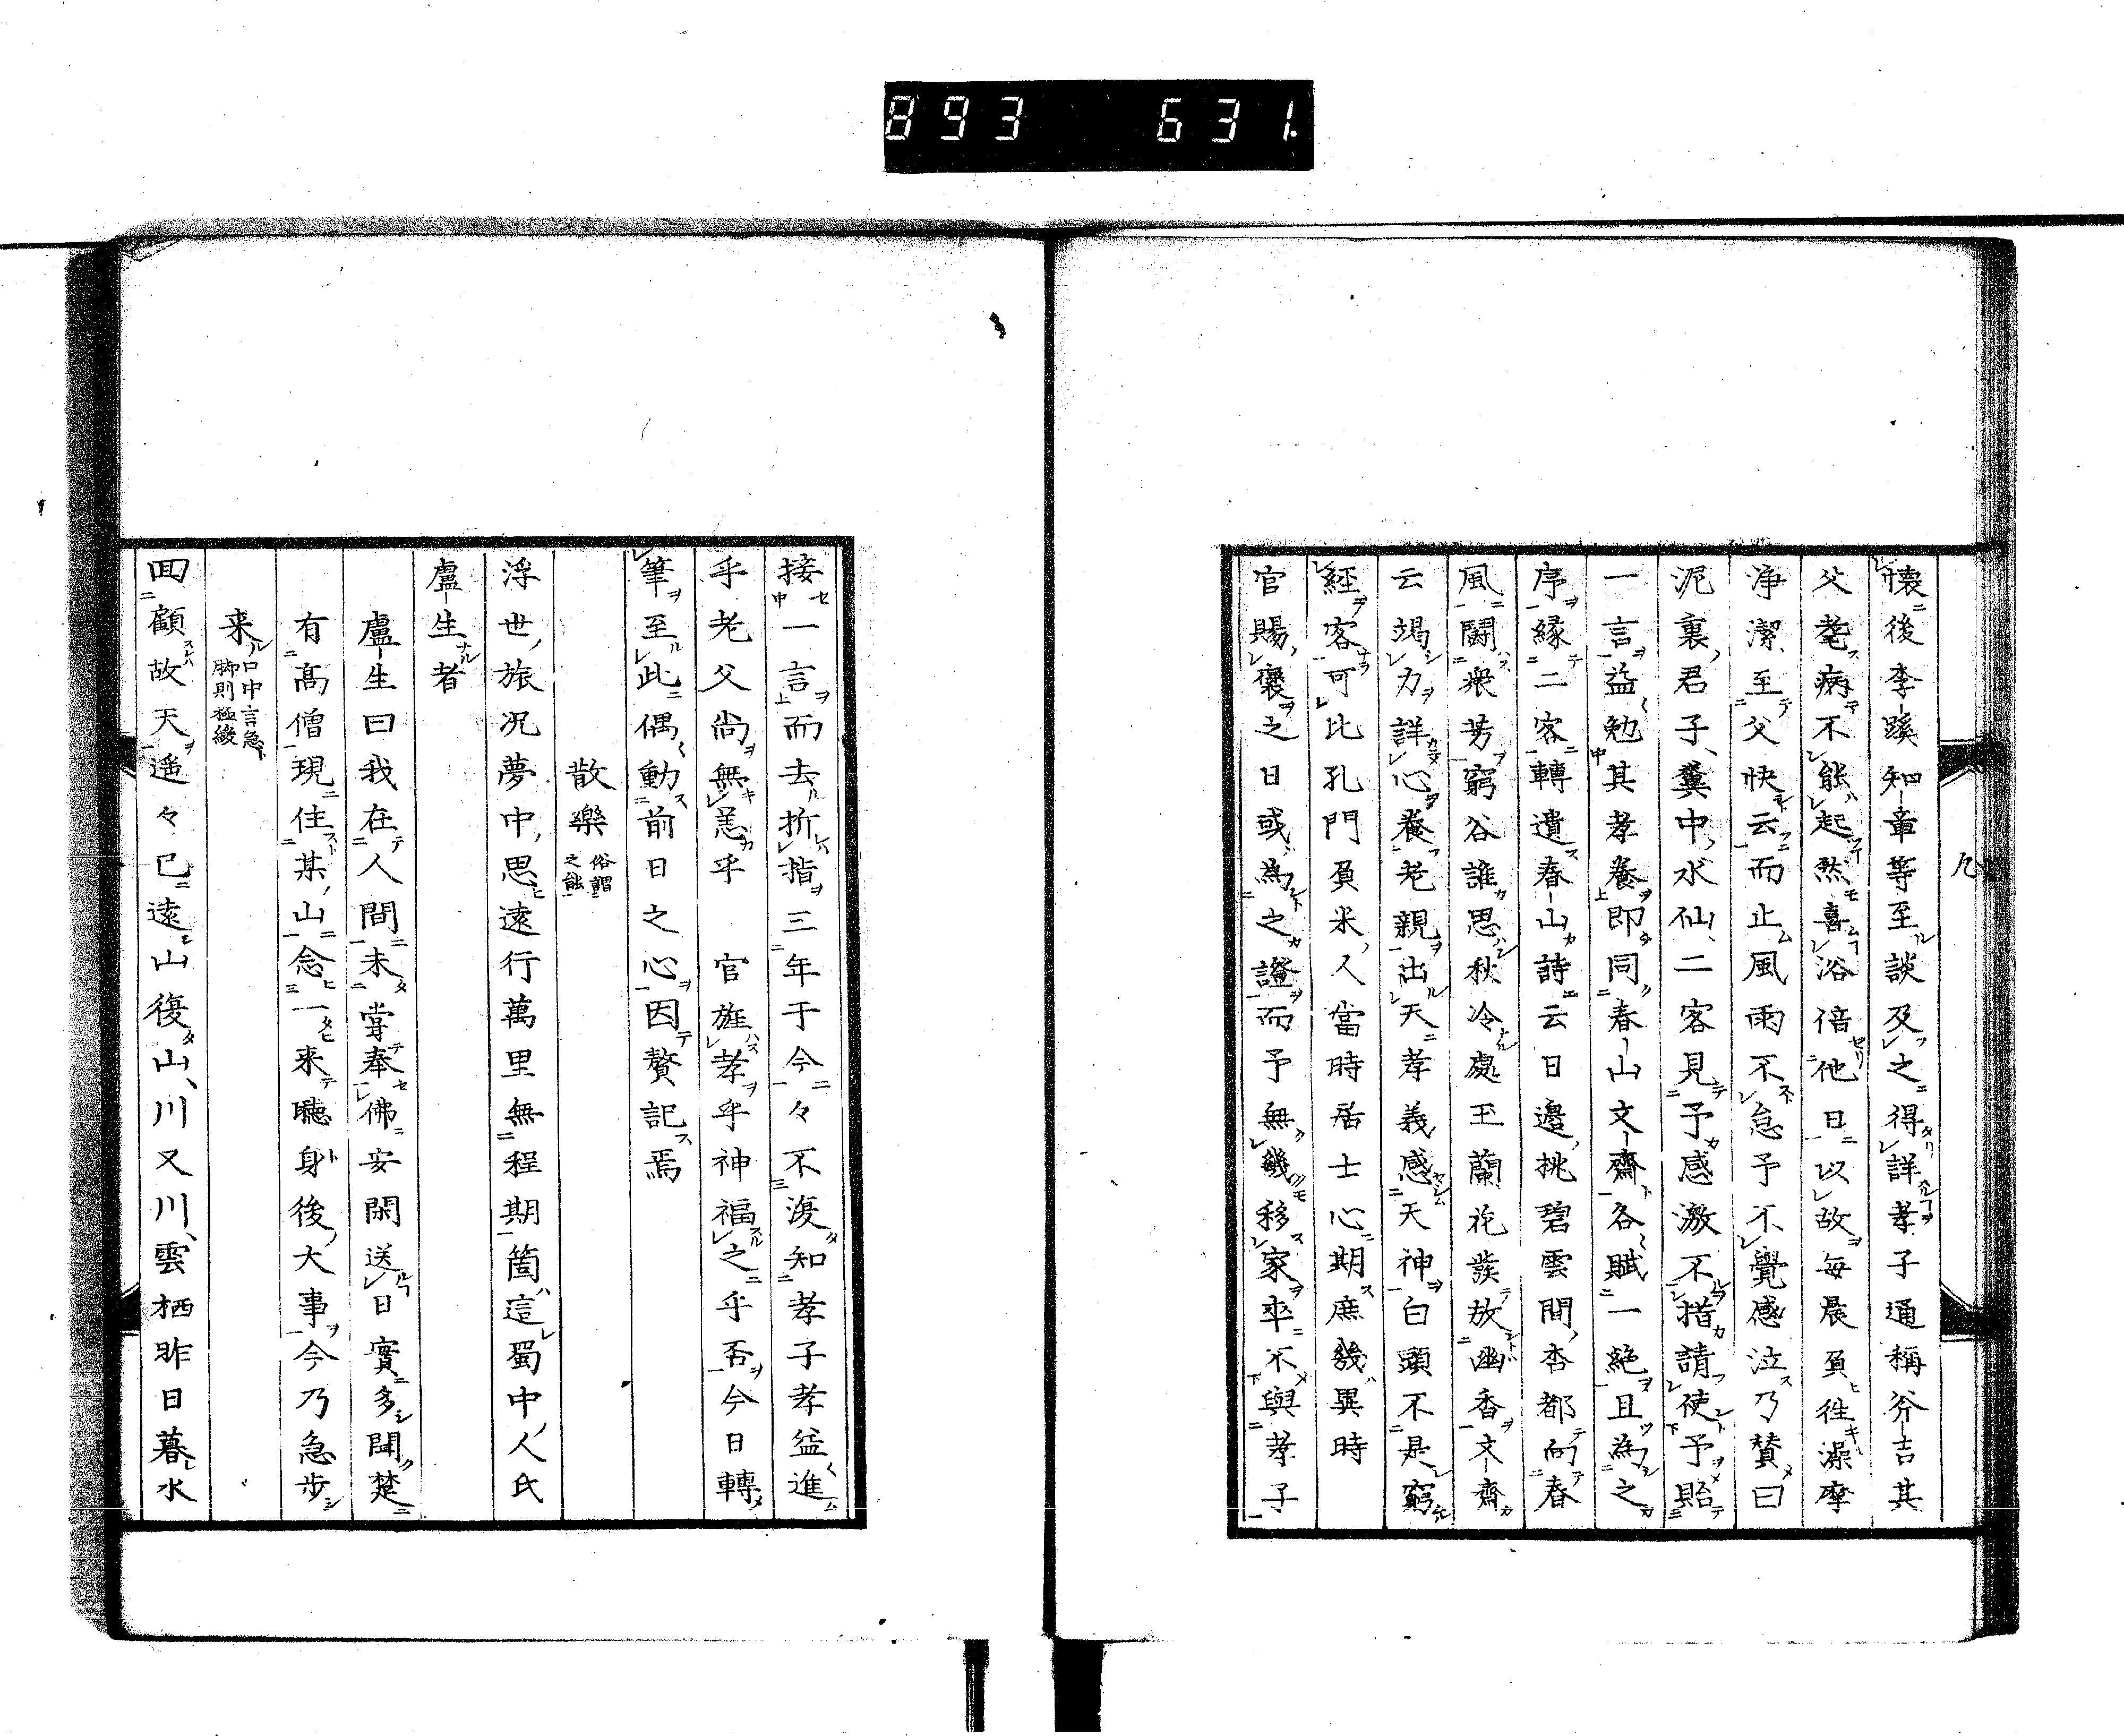 893 631.
懐後李蹊知章等至談及之得詳孝子通稱芥吉其
父耄病不能起然喜浴倍他日以故毎晨負往澡摩
浄潔至父快云而止風雨不怠予不覺感泣乃賛曰
泥裏君子糞中水仙二客見予感激不措請使予貽
一言益勉其孝養即同春山文齋各賦一絶且為之
序縁二客轉遺春山詩云日邉桃碧雲間杏都向春
風闘衆芳窮谷誰思秋冷處玉蘭花發放幽香文齋
云竭力詳心養老親出天孝義感天神白頭不是窮
經客可比孔門負米人當時居士心期庶幾異時
官賜褒之日或為之證而予無幾移家卒不與孝子
九
接一言而去折指三年于今々不復知孝子孝益進
乎老父尚無恙乎 官旌孝乎神福之乎否今日轉
筆至此偶動前日之心因贅記焉
散樂俗謂之能
浮世旅况夢中思遠行萬里無程期箇這蜀中人氏
盧生者
盧生曰我在人間未嘗奉佛安閑送日實多聞楚
有髙僧現住某山念一来聴身後大事今乃急歩
来口中言急脚則極緩
回顧故天遥々已遠山復山、川又川、雲栖昨日暮水